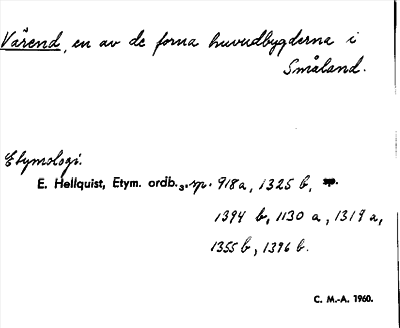 Värend, en av de forna huvudbygderna i
Småland.
Etymologi.
E. Hellquist, Etym. ordb.3, sp. 918a, 1325 b,
1394 b, 1130 a, 1319 a,
1355 b, 1396 b.
C. M.-A. 1960.